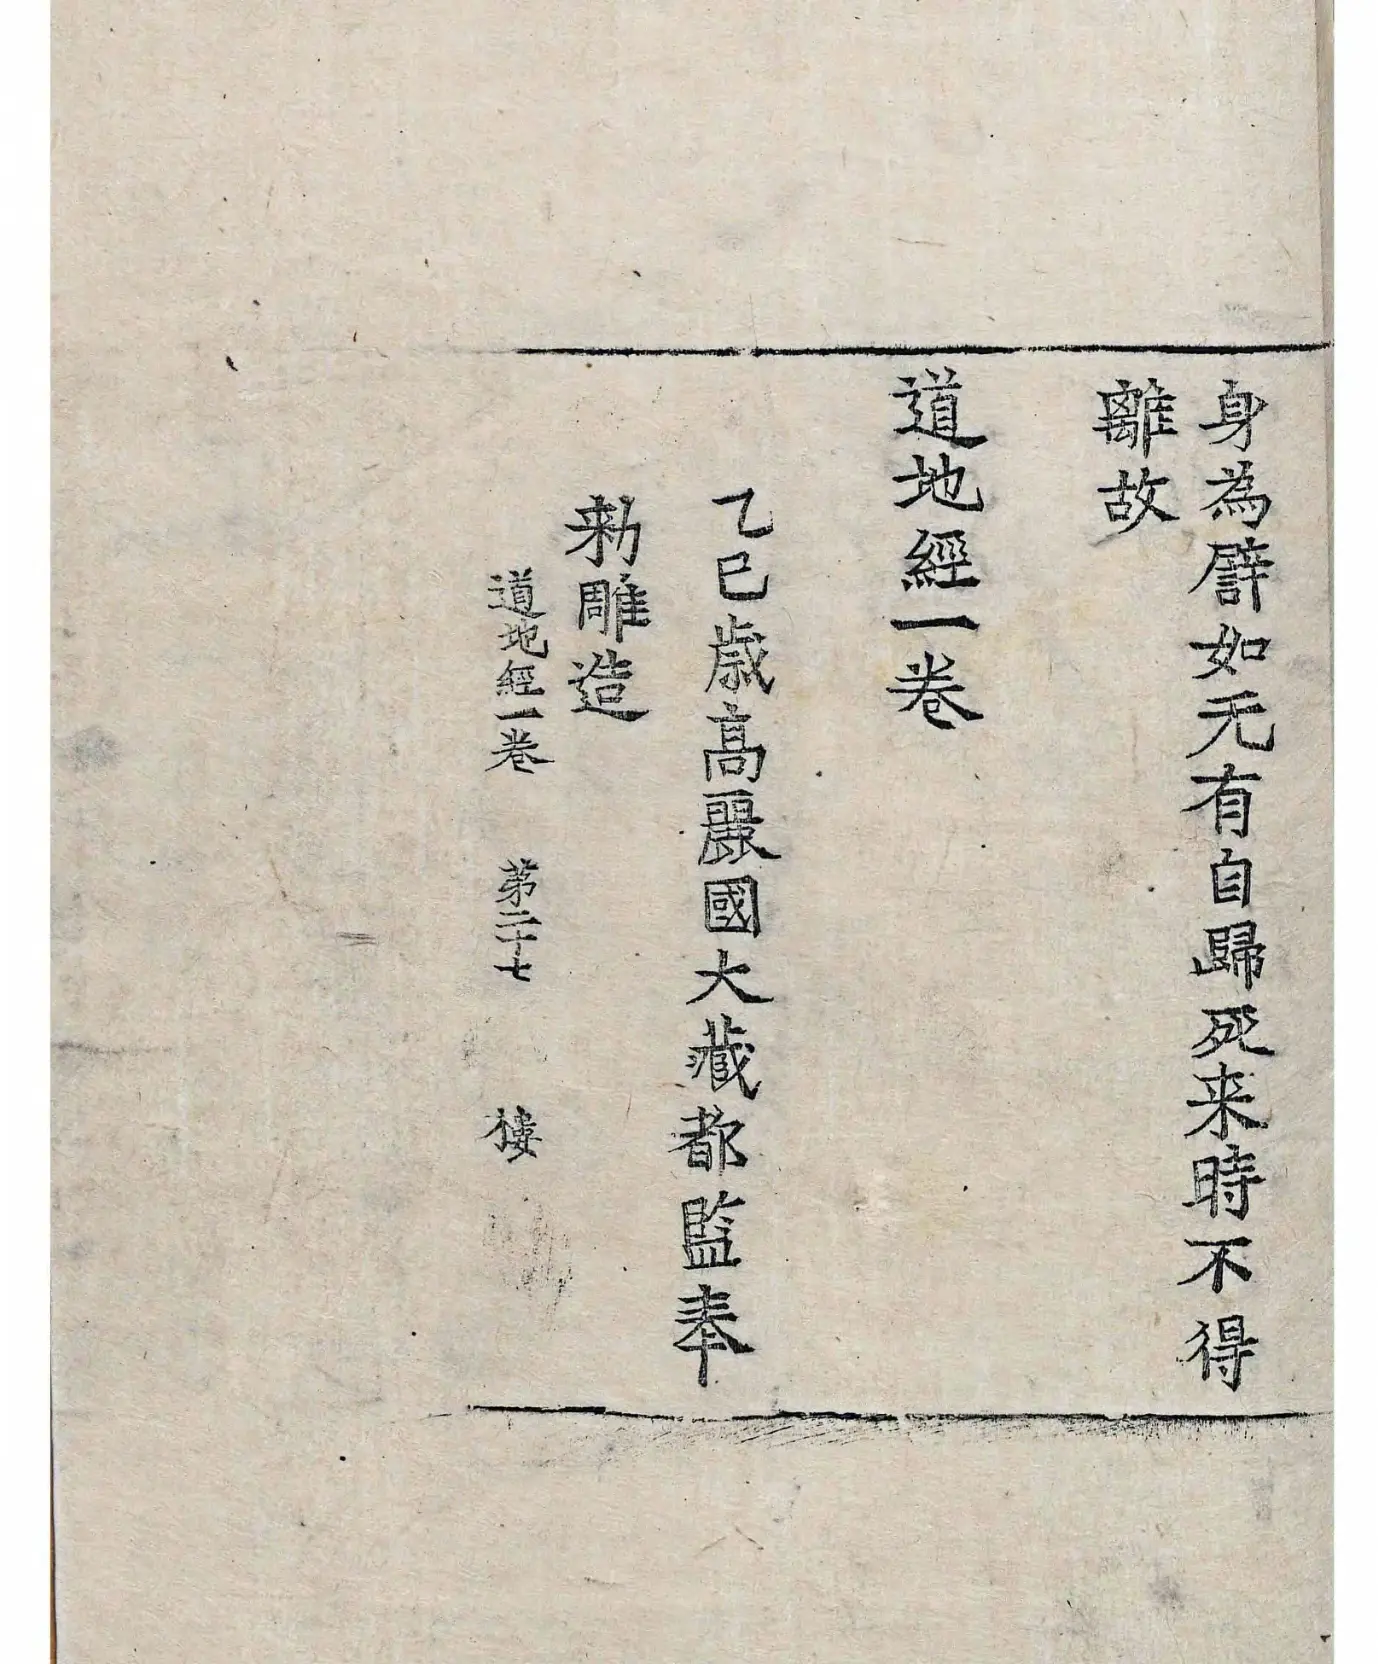 身為譬如无有自歸死来時不得
離故
道地經一卷
乙巳歲高麗國大藏都監奉
勑雕造
道地經一卷 第二十七 樓